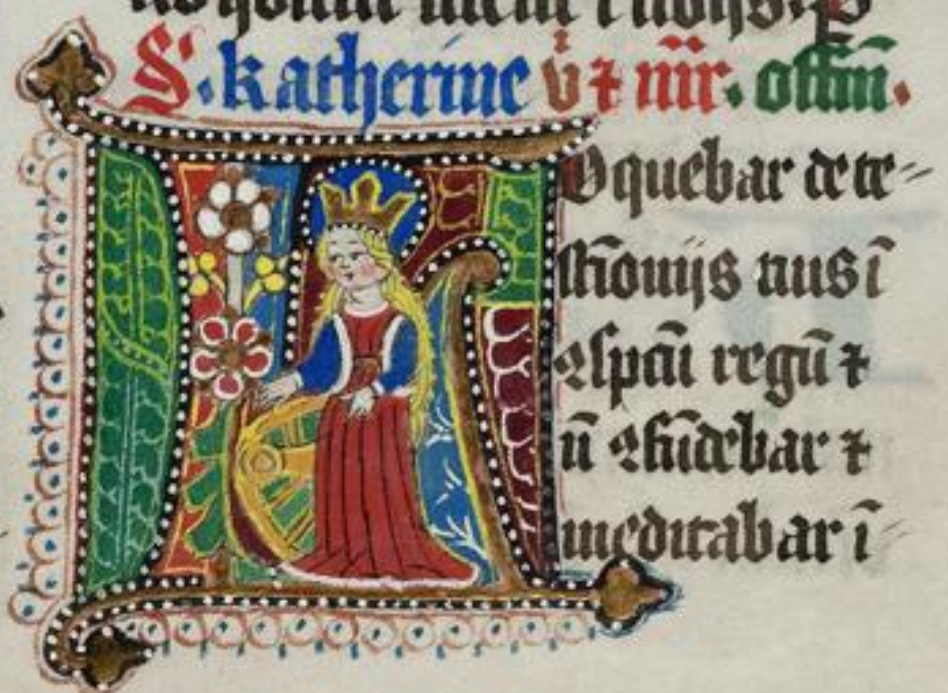 S. katherine v ⁊ mr̄. offm̄.
LOquebar de te-
stīonijs tuis ī
ꝯspcū regū ⁊
nō ꝯfūdebar ⁊
meditabar ī-